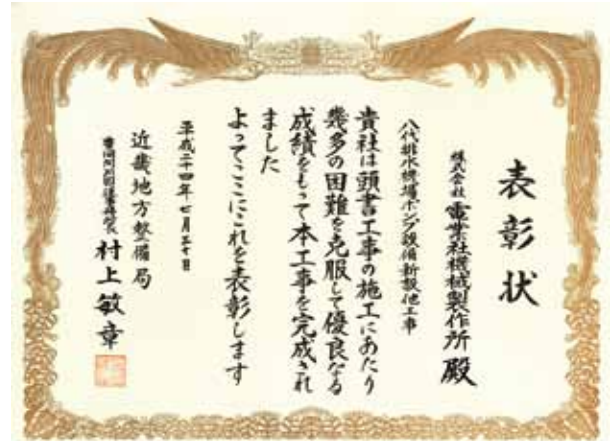 表彰状
株式会社 電業社機械製作所 殿
八代排水機場ポンプ設備新設他工事
貴社は頭書工事の施工にあたり
幾多の困難を克服して優良なる
成績をもって本工事を完成され
ました
よってここにこれを表彰します
平成二十四年七月三十日
近畿地方整備局
豊岡河川国道事務所長 村上敏章